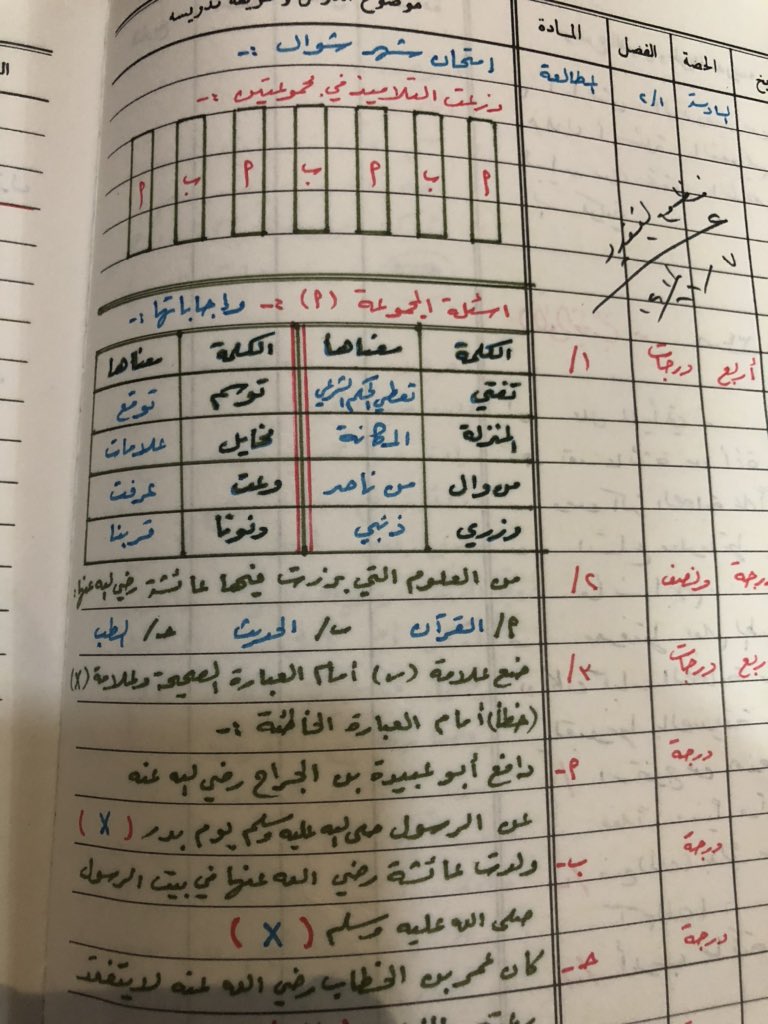 موضوع الدرس وطريقة تدريسه
المادة الفصل الحصة
امتحان شهر شوال :-
المطالعة ٢/١ السادسة
وزعت التلاميذ في مجموعتين :-
م ب م ب م ب م
اسئلة المجموعة (م) :- واجاباتها :-
أربع درجات ١/
الكلمة معناها الكلمة معناها
تفتي تعطي الحكم الشرعي توسم توقع
المنزلة المكانة مخايل علامات
من وال من ناصر وعت عرفت
وزري ذنبي ودنونا قربنا
درجة ونصف ٢/
من العلوم التي برزت فيها عائشة رضي الله عنها :
م/ القرآن ب/ الحديث حـ/ الطب
أربع درجات ٣/
ضع علامة (س) أمام العبارة الصحيحة وعلامة (X)
(خطأ) أمام العبارة الخاطئة :-
درجة م- دافع أبو عبيدة بن الجراح رضي الله عنه
عن الرسول صلى الله عليه وسلم يوم بدر (X)
درجة ب- ولدت عائشة رضي الله عنها في بيت الرسول
صلى الله عليه وسلم (X)
درجة حـ- كان عمر بن الخطاب رضي الله عنه لا يتفقد